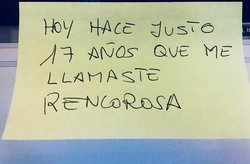 HOY HACE JUSTO
17 AÑOS QUE ME
LLAMASTE
RENCOROSA